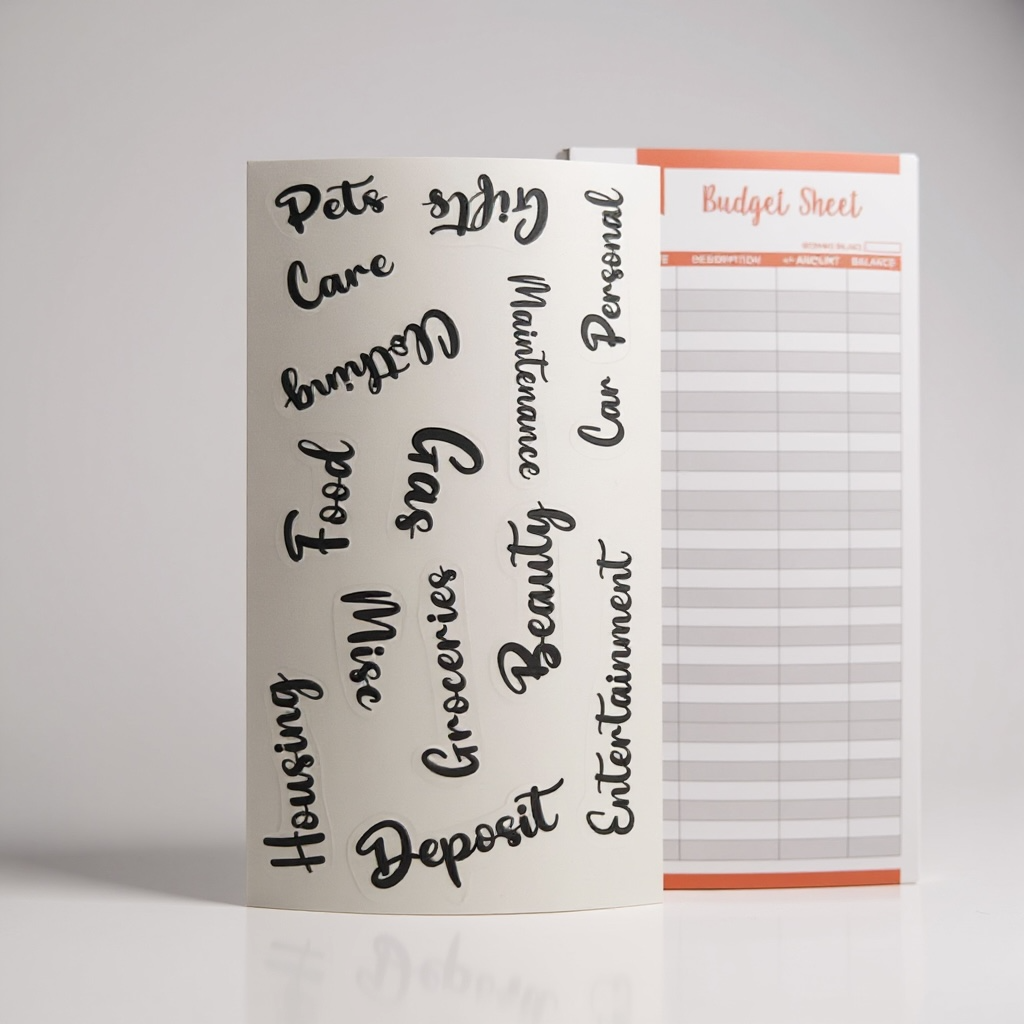 Pets
Gifts
Care
Personal
Car
Maintenance
Clothing
Food
Gas
Beauty
Misc
Groceries
Entertainment
Housing
Deposit
Budget Sheet
AMOUNT
BALANCE